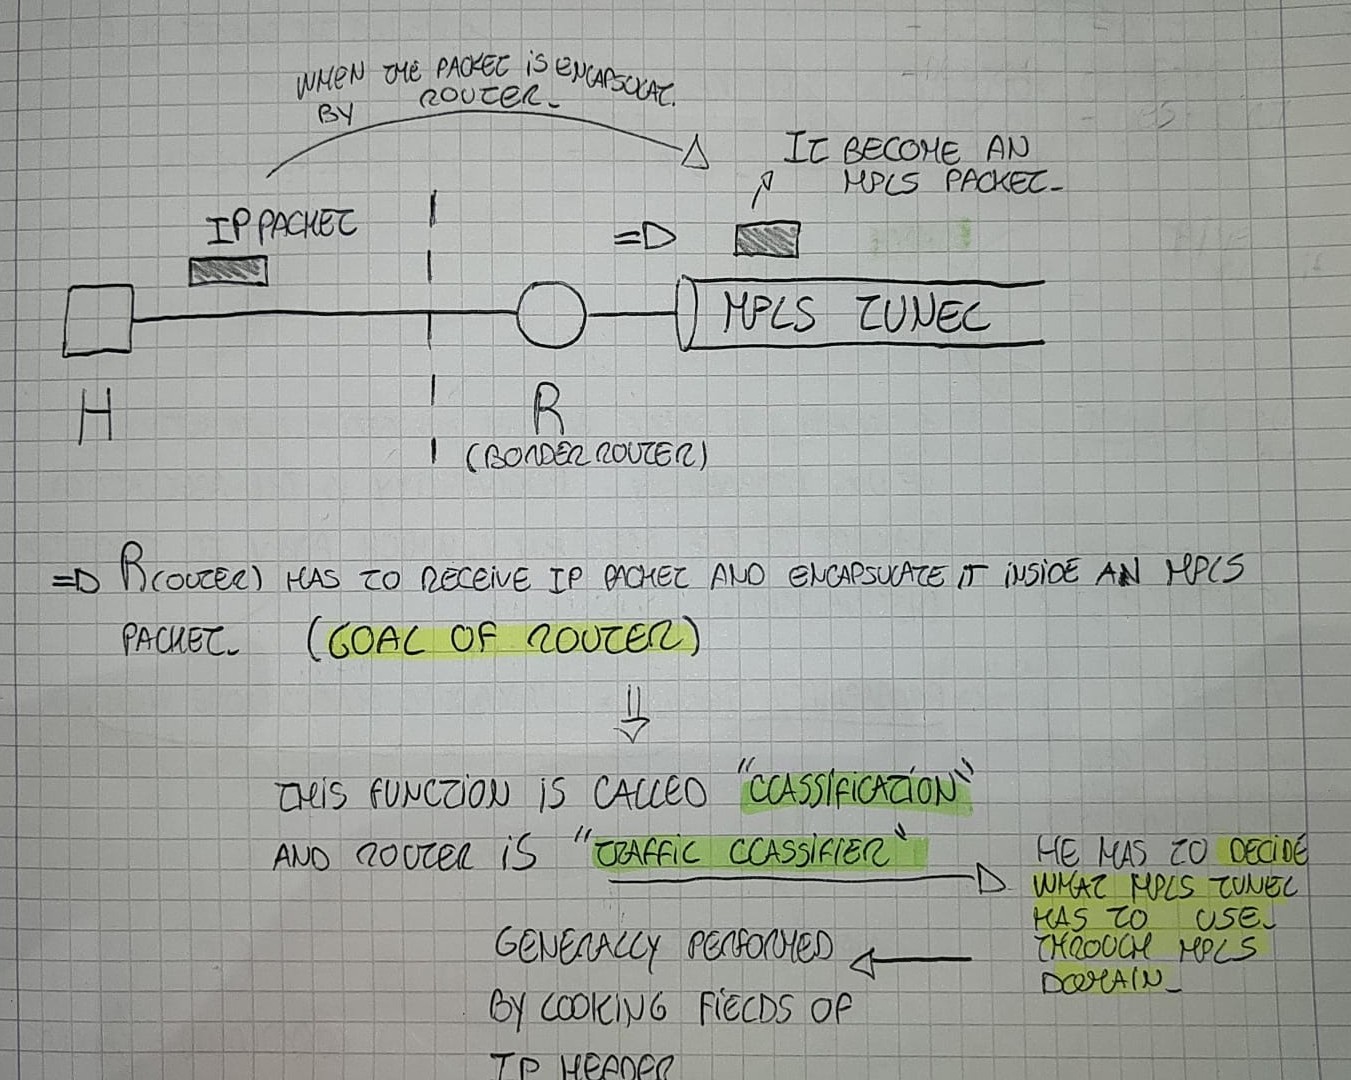 WHEN THE PACKET iS ENCAPSULAT.
BY ROUTER.
IT BECOME AN
MPLS PACKET.
IP PACKET
=D
MPLS TUNEL
H
R
(BORDER ROUTER)
=D R(OUTER) HAS TO RECEIVE IP PACKET AND ENCAPSULATE IT INSIDE AN MPLS
PACKET. (GOAL OF ROUTER)
THIS FUNCTION IS CALLED "CLASSIFICATION"
AND ROUTER IS "TRAFFIC CLASSIFIER"
HE HAS TO DECIDE
WHAT MPLS TUNEL
HAS TO USE.
THROUGH MPLS
DOMAIN.
GENERALLY PERFORMED
BY LOOKING FIELDS OF
IP HEADER